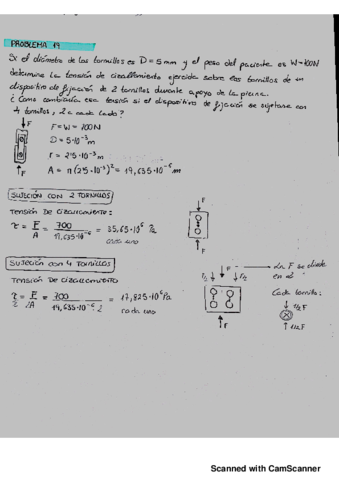 PROBLEMA 19
Si el diámetro de los tornillos es D = 5mm y el peso del paciente es W = 700N
determina la tensión de cizallamiento ejercida sobre los tornillos de un
dispositivo de fijación de 2 tornillos durante apoyo de la pierna.
¿Cómo cambiaría esa tensión si el dispositivo de fijación se sujetase con
4 tornillos, 2 a cada lado?
F
F = W = 700N
D = 5·10⁻³ m
r = 2'5·10⁻³ m
A = π(2'5·10⁻³)² = 19,635·10⁻⁶ m
F
SUJECIÓN CON 2 TORNILLOS
TENSIÓN DE CIZALLAMIENTO:
τ = F/A = 700/19,635·10⁻⁶ = 35,65·10⁶ Pa
cada uno
F
F
SUJECIÓN CON 4 TORNILLOS
TENSIÓN DE CIZALLAMIENTO
τ/2 = F/2A = 700/19,635·10⁻⁶ · 2 = 17,825·10⁶ Pa
cada uno
F
F/2
F/2
F
La F se divide
en 2
Cada tornillo:
1/2 F
1/2 F
Scanned with CamScanner